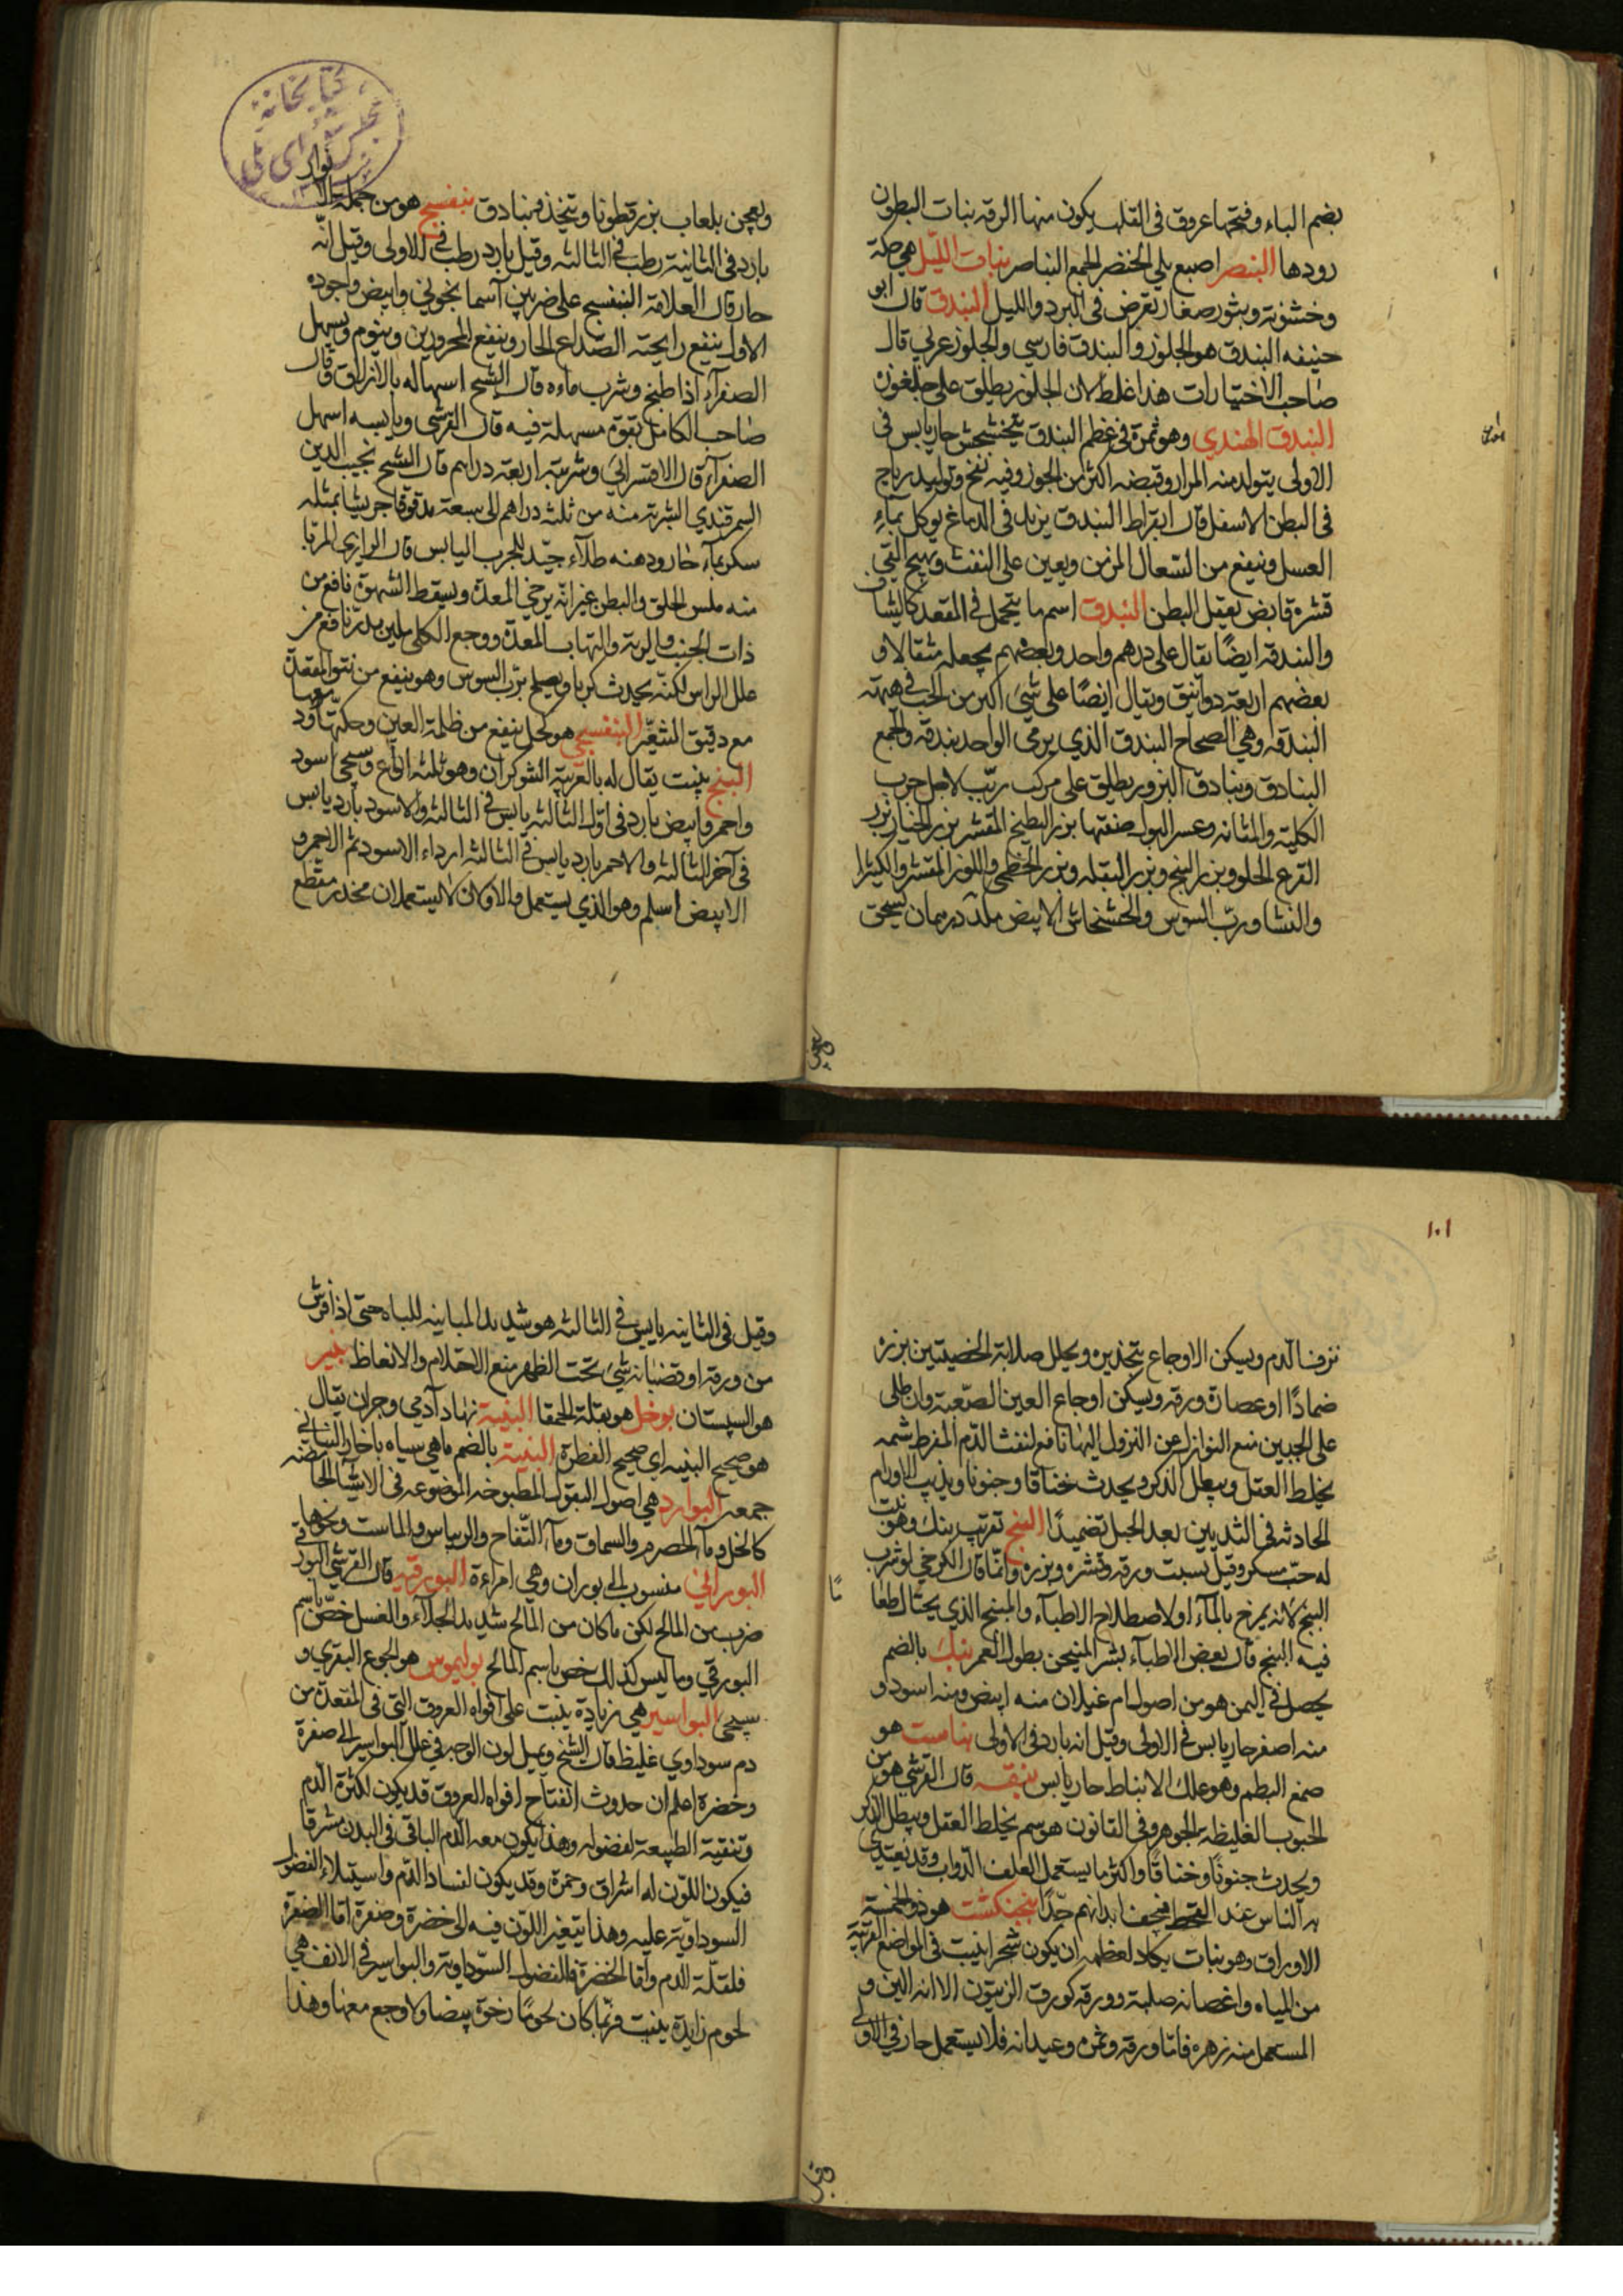 بضم الباء وفتحها عروق فى القلب يكون منها الرقه بنات البطون
رودها البنصر اصبع يلي الخنصر الجمع البناصر بنات الليل هي حكة
وخشونة وبثور صغار تعرض فى البرد والليل البندق قال ابو
حنيفه البندق هو الجلوز والبندق فارسي والجلوز عربي قال
صاحب الاختيارات هذا غلط لان الجلوز يطلق على جلغوزه
البندق الهندي وهو ثمرة فى عظم البندق يتخشخش حار يابس فى
الاولى يتولد منه المرار وقبضه اكثر من الجوز وفيه نفخ وتوليد رياح
فى البطن الاسفل قال ابقراط البندق يزيد فى الدماغ يوكل بماء
العسل فينفع من السعال المزمن ويعين على النفث ويهيج القي
قشره قابض يعقل البطن البندق اسم ما يتحمل فى المقعد كالشياف
والبندقه ايضًا يقال على درهم واحد وبعضهم يجعله مثقالا و
بعضهم اربعة دوانيق ويقال ايضًا على شيئ اكبر من الحب فى هيئة
البندقه وهي الصحاح البندق الذي يرمى الواحد بندقه والجمع
البنادق وبنادق البزور يطلق على مركب رتب لاجل جرب
الكلية والمثانه وعسر البول صنعتها بزر البطيخ المقشر بزر الخيار بزر
القرع الحلو وبزر البنج وبزر البقله وبزر الخطمي واللوز المقشر والكثيرا
والنشا ورب السوس والخشخاش الابيض يسحق
يعجن
كتابخانه مجلس شوراى ملى
ويعجن بلعاب بزر قطونا ويتخذ فبنادق بنفسج هو من جملة الانوار
بارد فى الثانية رطب فى الثالثه وقيل بارد رطب فى الاولى وقيل انه
حار قال العلامة البنفسج على ضربين آسمانجوني وابيض واجوده
الاول ينفع رايحته الصداع الحار وينفع المحرورين وينوم ويسهل
الصفراء اذا طبخ وشرب ماءه قال الشيخ اسهاله بالازلاق وقال
صاحب الكامل بقوة مسهلة فيه قال القرشى ويابسه اسهل
الصفراء قال الاقسرائى وشربته اربعة دراهم قال الشيخ نجيب الدين
السمرقندي الشربة منه من ثلثه دراهم الى سبعة مدقوقا جريشا بمثله
سكر بماء حار ودهنه طلاء جيد للجرب اليابس قال الرازى المربا
منه ملس الحلق والبطن غير انه يرخي المعدة ويسقط الشهوة نافع من
ذات الجنب والرية والتهاب المعدة ووجع الكلى يلين يدر نافع من
علل الراس لكنه يحدث كربا ويصلح برب السوس وهو ينفع من نتو المقعدة
مع دقيق الشعير البنفسجي هو كحل ينفع من ظلمة العين وحكتها ود
البنج ينبت يقال له بالعربية الشوكران وهو ثلثه انواع وسيجئ اسود
واحمر وابيض بارد فى اول الثالثه يابس فى الثالثه والاسود بارد يابس
فى آخر الثالثه والاحمر بارد يابس فى الثالثه ارداء الاسود ثم الاحمر و
الابيض اسلم وهو الذي يستعمل والاولان لا يستعملان مخدر مقطع
١٠١
نزف الدم ويسكن الاوجاع بتخذيره ويحلل صلابة الخصيتين بزره
ضمادًا او عصارة ورقه ويسكن اوجاع العين الصعبة وان طلى
على الجبين منع النوازل عن النزول اليها نافع لنفث الدم المفرط شمه
يخلط العقل ويبطل الذكر ويحدث خناقا وجنونا ويذيب الاورام
الحادثه فى الثديين بعد الحبل تضميدًا البنج تعريب بنك وهو نبت
له حب مسكر وقيل يسبت ورقه وقشره وبزره وانما قال الكرخي لو شرب
البنج لانه يمزج بالماء او لاصطلاح الاطباء والمبنج الذي يحتال طعاما
فيه البنج قال بعض الاطباء بشر المنيجن بطول العمر بنك بالضم
يحصل فى اليمن هو من اصول ام غيلان منه ابيض ومنه اسود و
منه اصفر حار يابس فى الاولى وقيل انه بارد فى الاولى بناست هو
صمغ البطم وهو علك الانباط حار يابس بنقه قال القرشي هو من
الحبوب الغليظه الجوهر وفى القانون هو سم يخلط العقل ويبطل الذكر
ويحدث جنونًا وخناقًا واكثر ما يستعمل لعلف الدواب وقد يغتذي
به الناس عند القحط فيجفف ابدانهم جدًا بنجنكشت هو ذو الخمسة
الاوراق وهو نبات يكاد لعظمه ان يكون شجرا ينبت فى المواضع القريبة
من المياه واغصانه صلبة وورقه كورق الزيتون الا انه الين و
المستعمل منه زهره فاما ورقه وثمره وعيدانه فلا يستعمل حار فى الاولى
وقيل
وقيل فى الثانيه يابس فى الثالثه هو شديد المباينه للباه حتى اذا فرش
من ورقه او قضبانه شيئ تحت الظهر منع الاحتلام والانعاظ بنير
هو السپستان بوخل هو بقلة الحمقا البنية نهاد آدمى وجزان يقال
هو صحيح البنيه اى صحيح الفطرة البنية بالضم ماهي سياه باخار البنانى
جمعه البوارد هي اصول البقول المطبوخه الموضوعه فى الاشياء الحامضه
كالخل وماء الحصرم والسماق وماء التفاح والريباس والماست ونحوها
البوراني منسوب الى بوران وهي امراءة البورقيه قال القرشي البورق
ضرب من المالح لكن ما كان من المالح شديد الجلاء والغسل خص باسم
البورقي وما ليس كذلك خص باسم المالح بوليموس هو الجوع البقري و
سيجئ البواسير هي زيادة ينبت على افواه العروق التى فى المقعدة من
دم سوداوي غليظ قال الشيخ ويميل لون الوجه فى علل البواسير الى صفرة
وخضرة اعلم ان حدوث انفتاح افواه العروق قد يكون لكثرة الدم
وتنقية الطبيعة لفضوله وهذا يكون معه الدم الباقى فى البدن مشرقا
فيكون اللون له اشراق وحمرة وقد يكون لفساد الدم واستيلاء الفضول
السوداوية عليه وهذا يتغير اللون فيه الى خضرة وصفرة اما الصفرة
فلقلة الدم واما الخضرة فللفضول السوداوية والبواسير فى الانف هي
لحوم زايدة ينبت فربما كان لحوما رخوة بيضا ولا وجع معها وهذا